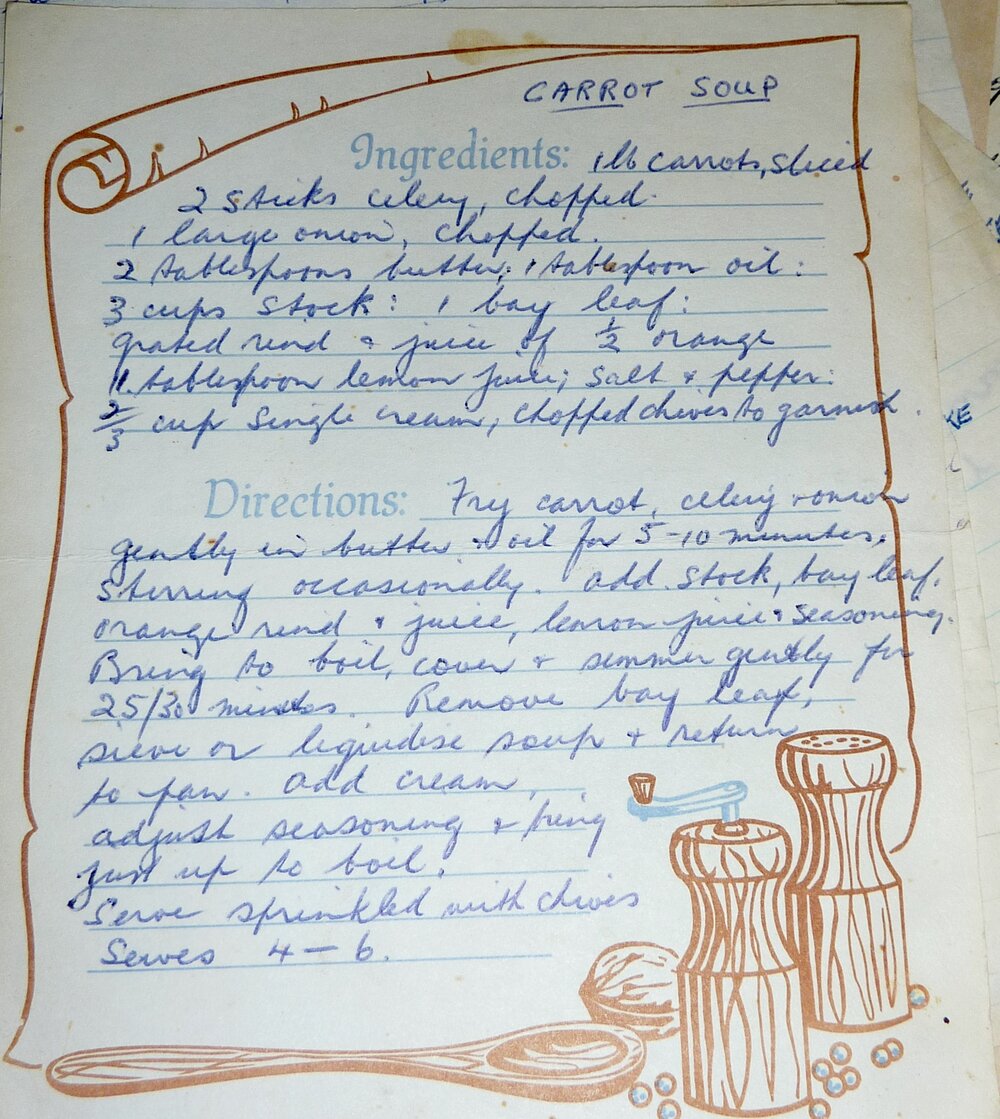 CARROT SOUP
Ingredients: 1 lb carrots, sliced
2 sticks celery, chopped.
1 large onion, chopped.
2 tablespoons butter; 1 tablespoon oil:
3 cups stock: 1 bay leaf:
grated rind & juice of 1/2 orange
1 tablespoon lemon juice; salt & pepper:
2/3 cup single cream, chopped chives to garnish.
Directions: Fry carrot, celery & onion
gently in butter & oil for 5-10 minutes,
stirring occasionally. add stock, bay leaf,
orange rind & juice, lemon juice & seasoning.
Bring to boil, cover & simmer gently for
25/30 minutes. Remove bay leaf,
sieve or liquidise soup & return
to pan. add cream,
adjust seasoning & bring
just up to boil.
Serve sprinkled with chives
Serves 4 - 6.